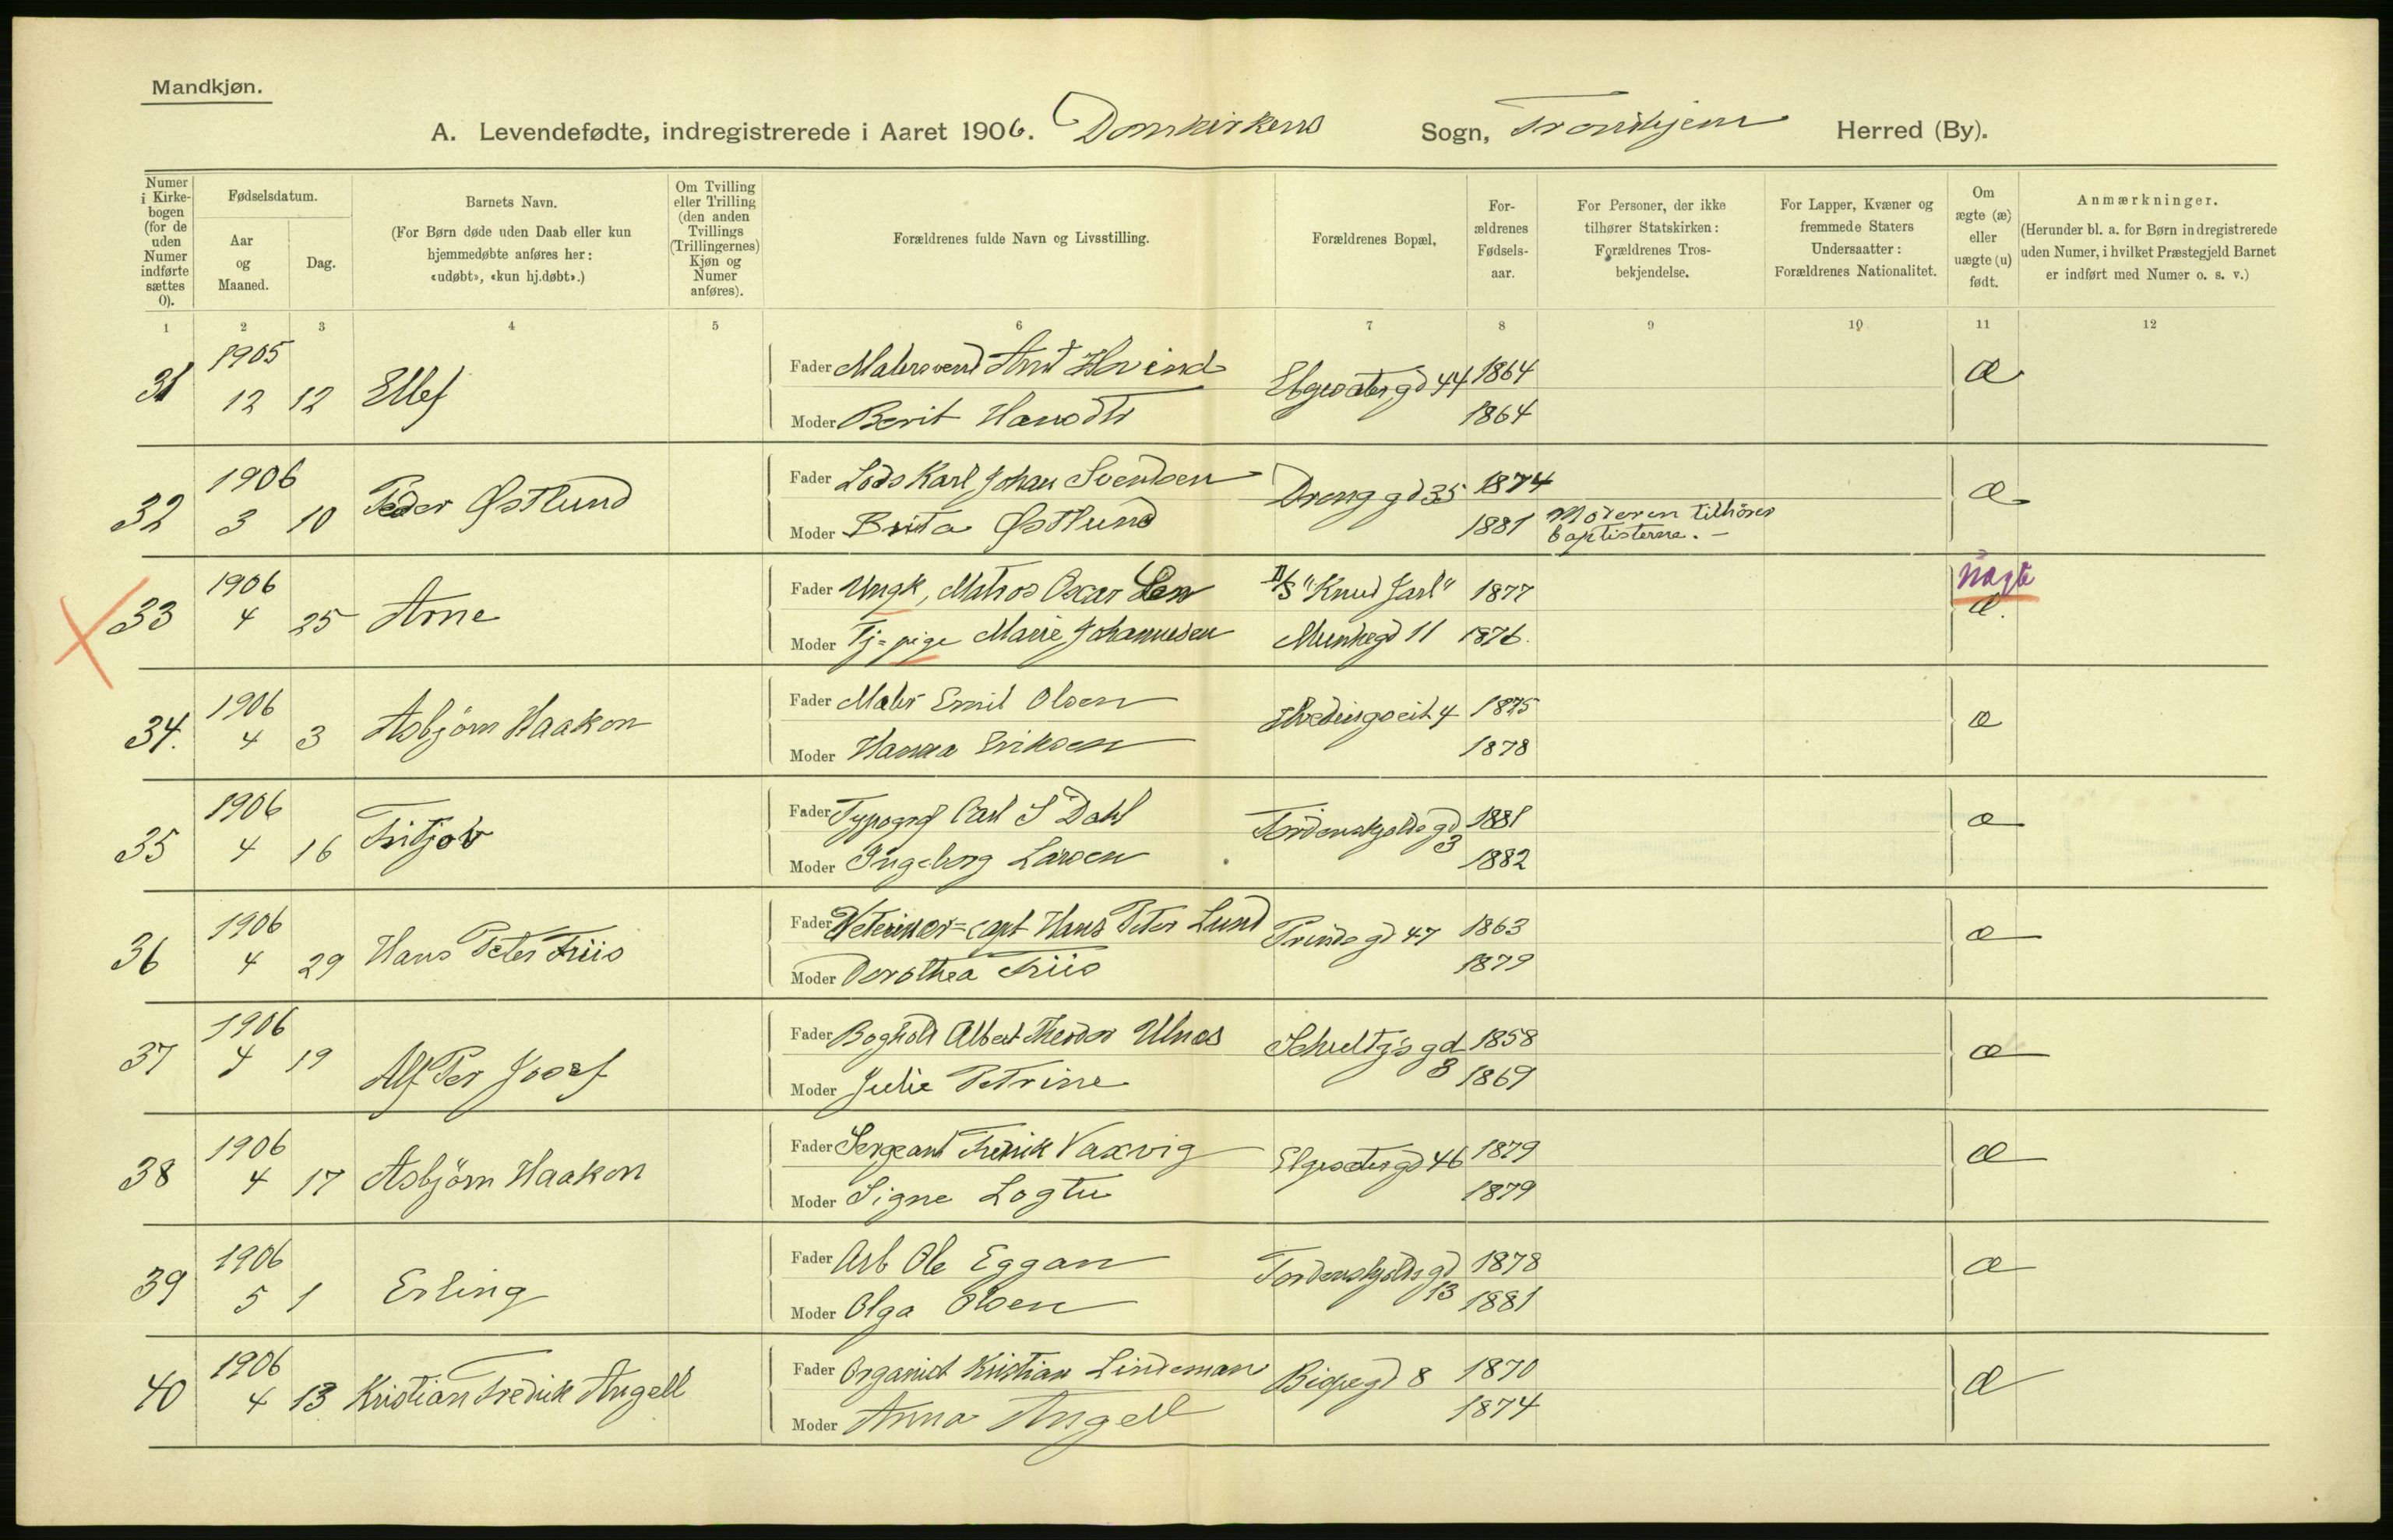 Mandkjøn.
A. Levendefødte, indregistrerede i Aaret 1906. Domkirkens Sogn, Trondhjem Herred (By).
Numer i Kirkebogen (for de uden Numer indførte sættes 0).
Fødselsdatum.
Aar og Maaned.
Dag.
Barnets Navn.
(For Børn døde uden Daab eller kun hjemmedøbte anføres her: «udøbt», «kun hj.døbt».)
Om Tvilling eller Trilling (den anden Tvillings (Trillingernes) Kjøn og Numer anføres).
Forældrenes fulde Navn og Livsstilling.
Forældrenes Bopæl,
Forældrenes Fødselsaar.
For Personer, der ikke tilhører Statskirken: Forældrenes Trosbekjendelse.
For Lapper, Kvæner og fremmede Staters Undersaatter: Forældrenes Nationalitet.
Om ægte (æ) eller uægte (u) født.
Anmærkninger.
(Herunder bl. a. for Børn indregistrerede uden Numer, i hvilket Præstegjeld Barnet er indført med Numer o. s. v.)
1 2 3 4 5 6 7 8 9 10 11 12
31 1905 12 12 Ellef Fader Malersvend Arnt Hovind Elgesætergd 44 1864 æ
Moder Berit Hansdtr 1864
32 1906 3 10 Peder Østlund Fader Lods Karl Johan Svendsen Dronggd 35 1874 æ
Moder Brita Østlund 1881 Moderen tilhører baptisterne. –
33 1906 4 25 Arne Fader Ungk, Matros Oscar D/S "Knud Jarl" 1877 uægte æ.
Moder Tj=pige Marie Johannesen Munkegd 11 1876.
34. 1906 4 3 Asbjörn Haakon Fader Maler Emil Olsen 4 1875 æ
Moder Hanna Eriksen 1878
35 1906 4 16 Fritjov Fader Typograf Carl S Dahl Tordenskjoldsgd 3 1881 æ
Moder Ingeborg Larsen 1882
36 1906 4 29 Hans Peter Friis Fader Veterinær=capt Hans Peter Lund Prindsgd 47 1863 æ
Moder Dorothea Friis 1879
37 1906 4 19 Alf Per Josef Fader Boghold Albert Theodor Ulnes Schultz's gd 8 1858 æ
Moder Julie Petrine 1869
38 1906 4 17 Asbjörn Haakon Fader Sergeant Fredrik Vaxvig Elgesætergd 46 1879 æ
Moder Signe Logtu 1879
39 1906 5 1 Erling Fader Arb Ole Eggan Tordenskjoldsgd 13 1878 æ
Moder Olga Olsen 1881
40 1906 4 13 Kristian Fredrik Angell Fader Organist Kristian Lindeman Bispegd 8 1870 æ
Moder Anna Angell 1874